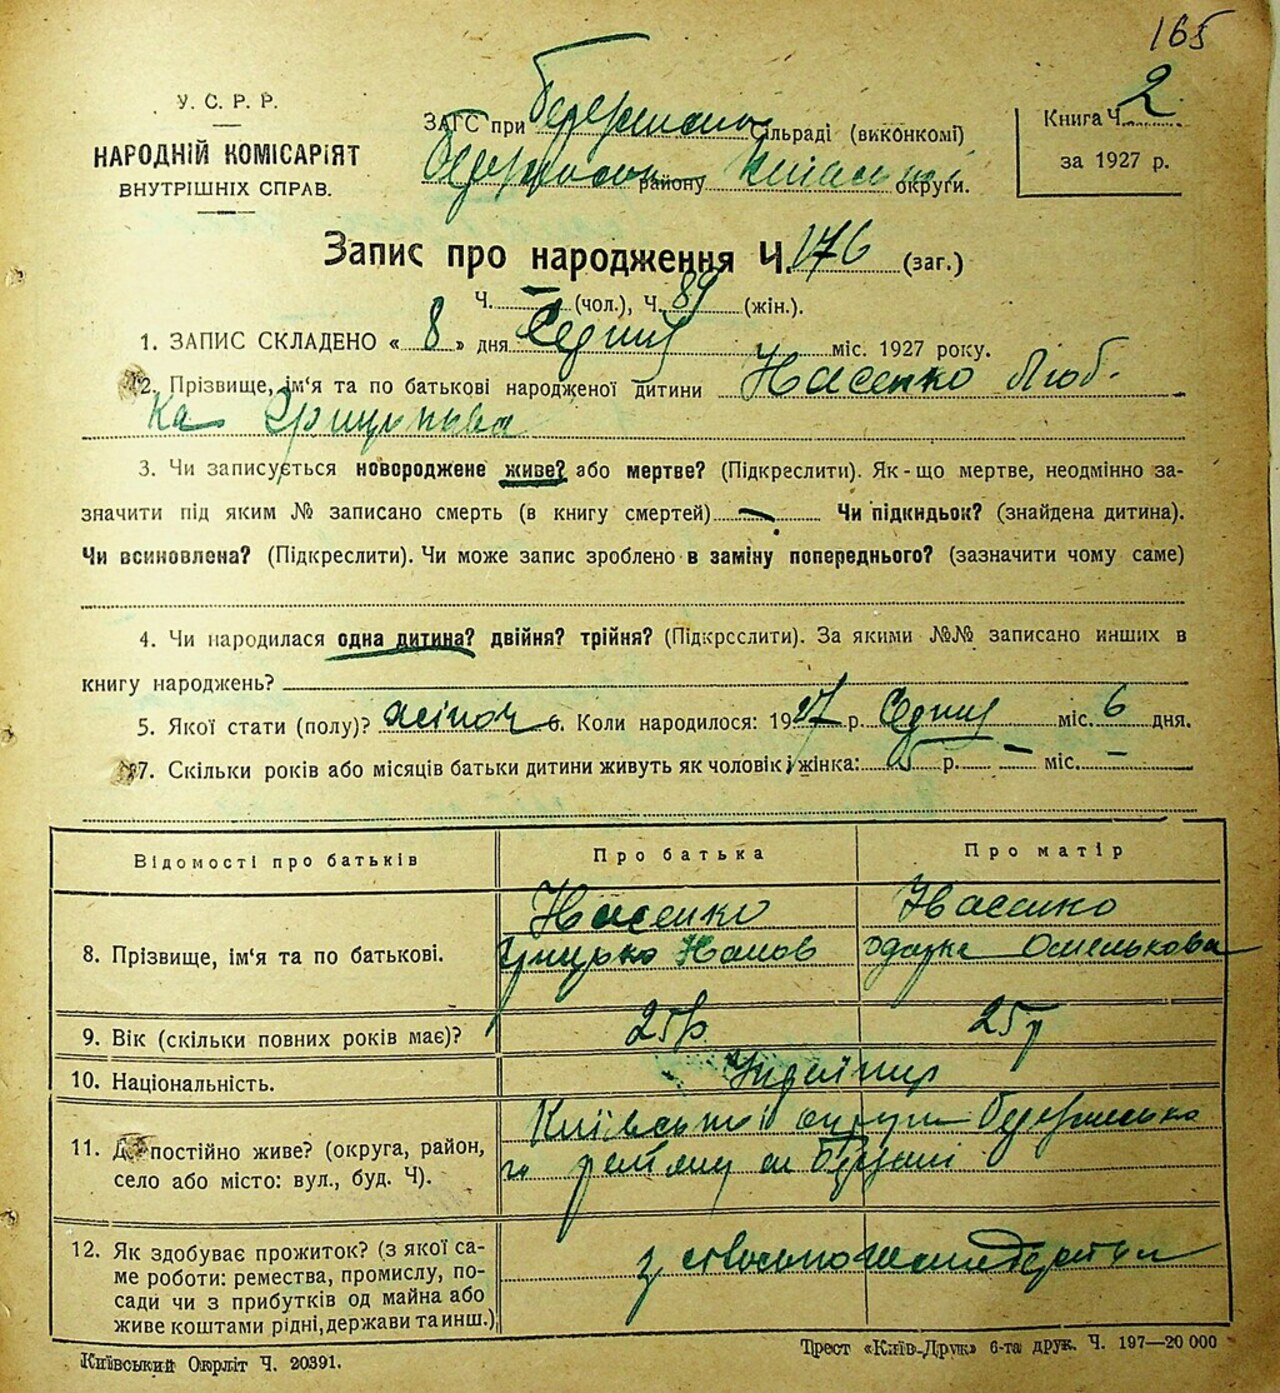 165
У. С. Р. Р.
НАРОДНІЙ КОМІСАРІЯТ
ВНУТРІШНІХ СПРАВ.
ЗАГС при Сільраді (виконкомі)
району округи.
Книга Ч. 2
за 1927 р.
Запис про народження Ч. 176 (заг.)
Ч. — (чол.), Ч. 89 (жін.).
1. ЗАПИС СКЛАДЕНО « 8 » дня Седния міс. 1927 року.
2. Прізвище, ім'я та по батькові народженої дитини Насенко Люб-
ка
3. Чи записується новороджене живе? або мертве? (Підкреслити). Як-що мертве, неодмінно за-
значити під яким № записано смерть (в книгу смертей) — Чи підкидьок? (знайдена дитина).
Чи всиновлена? (Підкреслити). Чи може запис зроблено в заміну попереднього? (зазначити чому саме)
4. Чи народилася одна дитина? двійня? трійня? (Підкреслити). За якими №№ записано инших в
книгу народжень?
5. Якої стати (полу)? 6. Коли народилося: 1927 р. Седния міс. 6 дня.
7. Скільки років або місяців батьки дитини живуть як чоловік і жінка: 5 р. — міс. —
Відомості про батьків
Про батька
Про матір
8. Прізвище, ім'я та по батькові.
Насенко
Грицько
Насенко
Одарка Омелькова
9. Вік (скільки повних років має)?
25 р
25 р
10. Національність.
11. Де постійно живе? (округа, район,
село або місто: вул., буд. Ч).
Київської округи
го району
12. Як здобуває прожиток? (з якої са-
ме роботи: ремества, промислу, по-
сади чи з прибутків од майна або
живе коштами рідні, держави та инш.)
з
Київський Окрліт Ч. 20391.
Трест «Київ-Друк» 6-та друк. Ч. 197—20 000